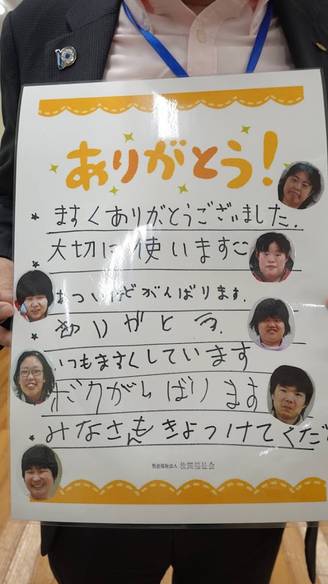 ありがとう!
ますくありがとうございました.
大切に使います
あついけどがんばります.
ありがとう.
いつもますくしています
ボクがんばります
みなさんもきょつけてくだ
社会福祉法人